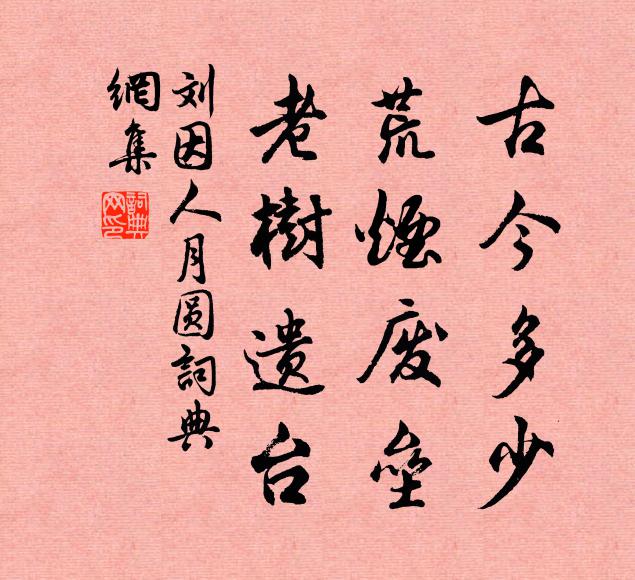 古今多少
荒烟废垒
老樹遗台
刘因人月圆詞典
網集
詞典网印